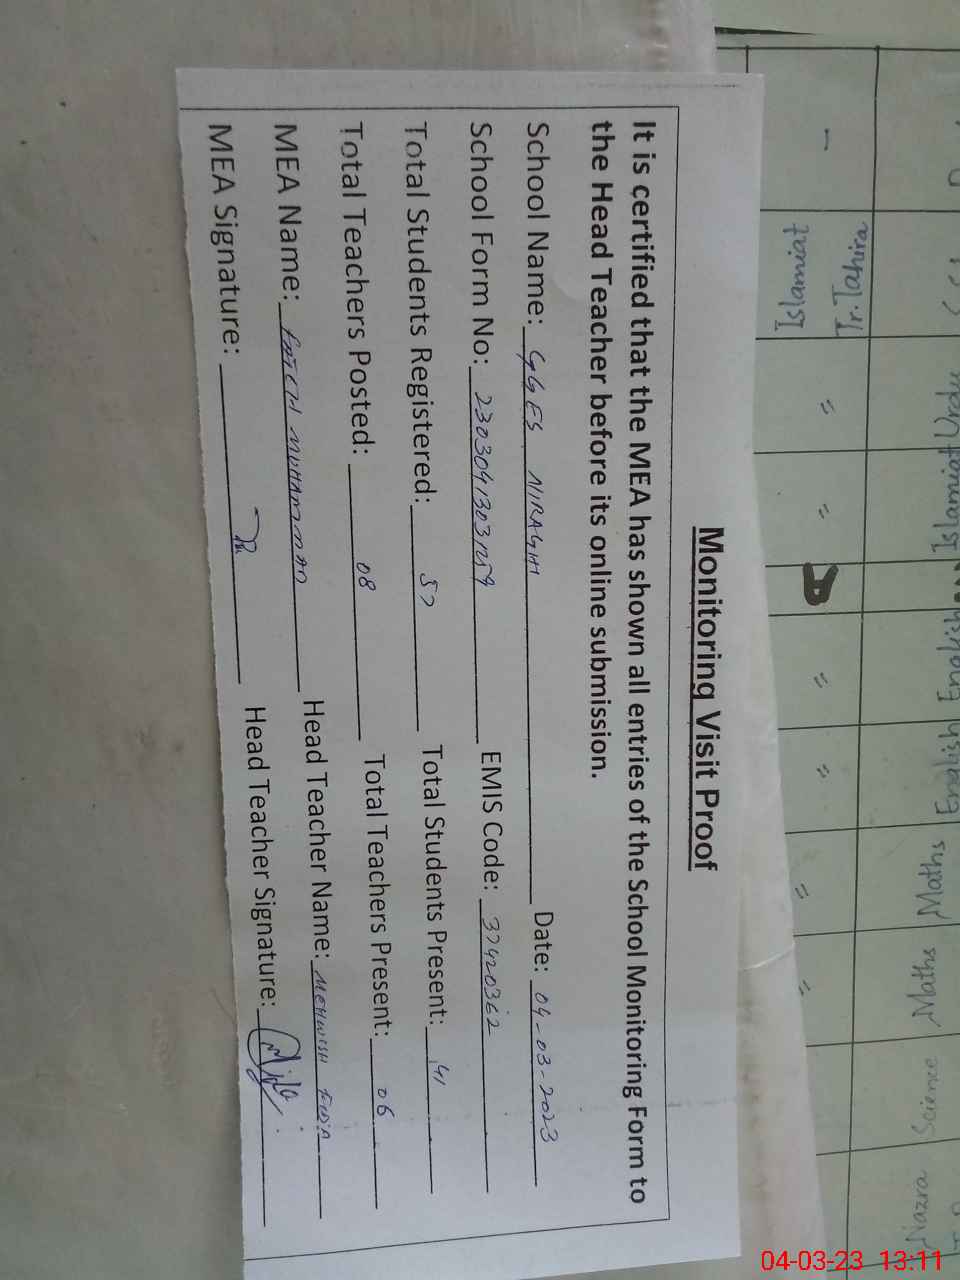 Monitoring Visit Proof
It is certified that the MEA has shown all entries of the School Monitoring Form to
the Head Teacher before its online submission.
School Name: GGES NIRAGHI Date: 04-03-2023
School Form No: EMIS Code: 37420362
Total Students Registered: 57 Total Students Present: 41
Total Teachers Posted: 08 Total Teachers Present: 06
MEA Name: FATEH MUHAMMAD Head Teacher Name: MEHWISH
MEA Signature: Head Teacher Signature:
Nazra
Science
Maths
Maths
English
English
Islamiat Urdu
Islamiat
04-03-23 13:11